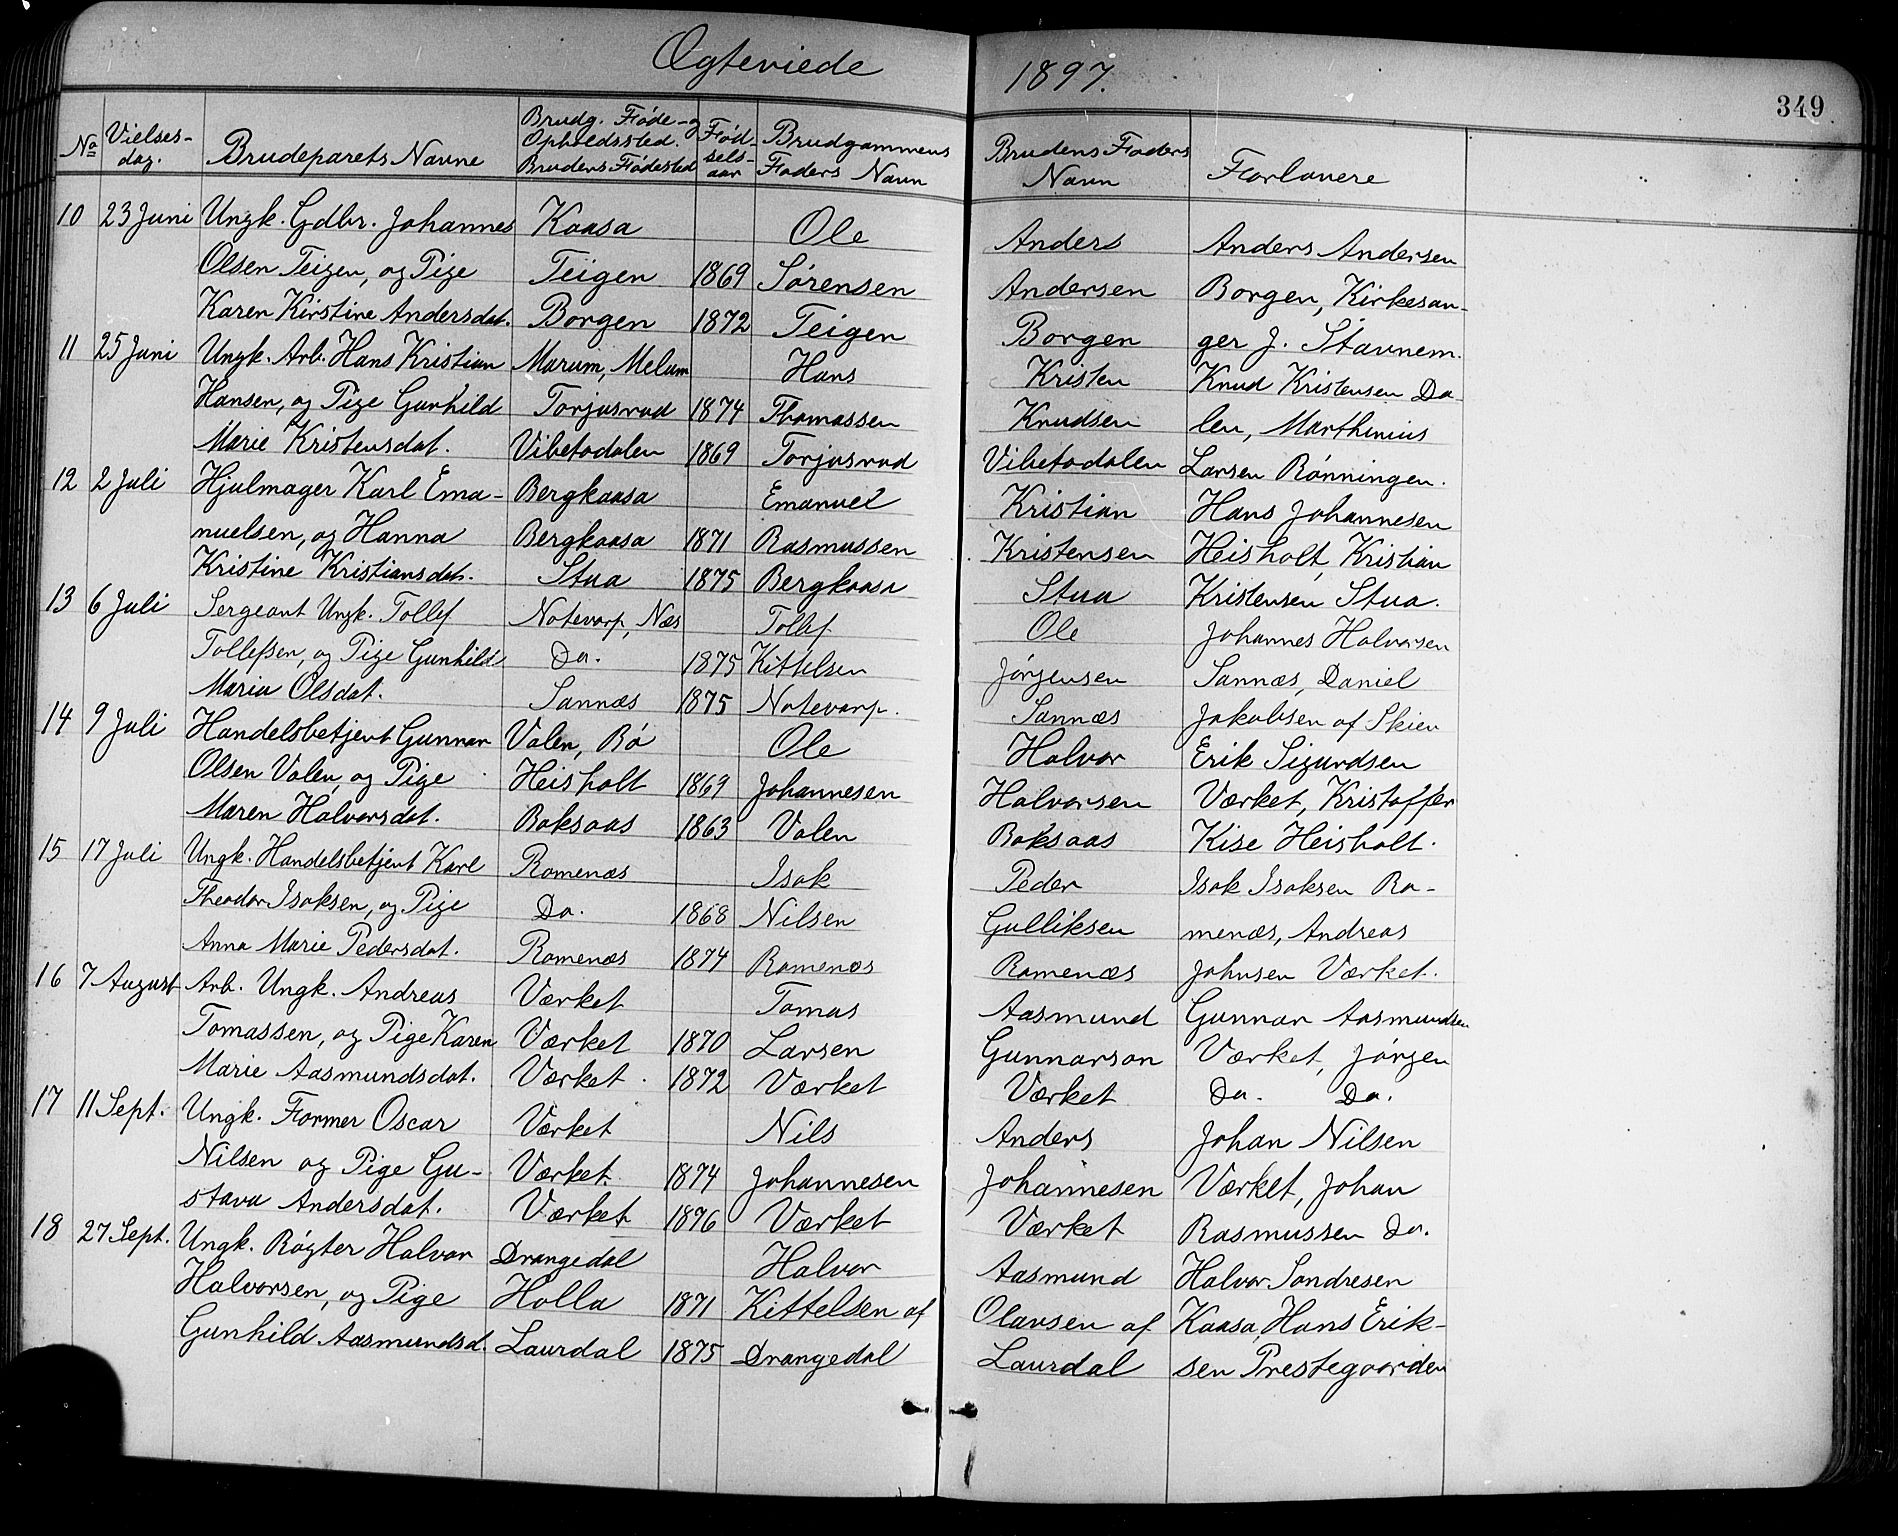 Ægteviede 1897.
349
No Vielses- dag. Brudeparets Navne Brudg. Føde- og Opholdssted. Brudens Fødested Fød- sels- aar Brudgommens Faders Navn Brudens Faders Navn Forlovere
10 23 Juni Ungk. Gdbr. Johannes Kaasa Ole Anders Anders Andersen
Olsen Teigen, og Pige Teigen 1869 Sørensen Andersen Borgen, Kirkesan-
Karen Kirstine Andersdat. Borgen 1872 Teigen Borgen ger J. Stavnem.
11 25 Juni Ungk. Arb. Hans Kristian Marum, Melum Hans Kristen Knud Kristensen Da-
Hansen, og Pige Gunhild Torjusrud 1874 Thomassen Knudsen len, Marthinius
Marie Kristensdat. Vibetodalen 1869 Torjusrud Vibetodalen Larsen Rønningen.
12 2 Juli Hjulmager Karl Ema- Bergkaasa Emanuel Kristian Hans Johannesen
nuelsen, og Hanna Bergkaasa 1871 Rasmussen Kristensen Heisholt, Kristian
Kristine Kristiansdat. Stua 1875 Bergkaasa Stua Kristensen Stua.
13 6 Juli Sergeant Ungk. Tollef Notevarp, Næs Tollef Ole Johannes Halvorsen
Tollefsen, og Pige Gunhild Do. 1875 Kittelsen Jørgensen Sannæs, Daniel
Maria Olsdat. Sannæs 1875 Notevarp. Sannæs Jakobsen af Skien
14 9 Juli Handelsbetjent Gunnar Valen, Bø Ole Halvor Erik Sigurdsen
Olsen Valen, og Pige Heisholt 1869 Johannesen Halvorsen Værket, Kristoffer
Maren Halvorsdat. Baksaas 1863 Valen Baksaas Kise Heisholt.
15 17 Juli Ungk. Handelsbetjent Karl Romenæs Isak Peder Isak Isaksen Ro-
Theodor Isaksen, og Pige Do. 1868 Nilsen Gulliksen menæs, Andreas
Anna Marie Pedersdat. Romenæs 1874 Romenæs Romenæs Johnsen Værket.
16 7 August Arb. Ungk. Andreas Værket Tomas Aasmund Gunnar Aasmundsen
Tomassen, og Pige Karen Værket 1870 Larsen Gunnarson Værket, Jørgen
Marie Aasmundsdat. Værket. 1872 Værket Værket Do. Do.
17 11 Sept. Ungk. Former Oscar Værket Nils Anders Johan Nilsen
Nilsen og Pige Gu- Værket 1874 Johannesen Johannesen Værket, Johan
stava Andersdat. Værket 1876 Værket Værket Rasmussen Do.
18 27 Sept. Ungk. Røgter Halvor Drangedal Halvor Aasmund Halvor Sondresen
Halvorsen, og Pige Holla 1871 Kittelsen af Olavsen af Kaasa, Hans Erik-
Gunhild Aasmundsd. Laurdal 1875 Drangedal Laurdal sen Prestegaarden